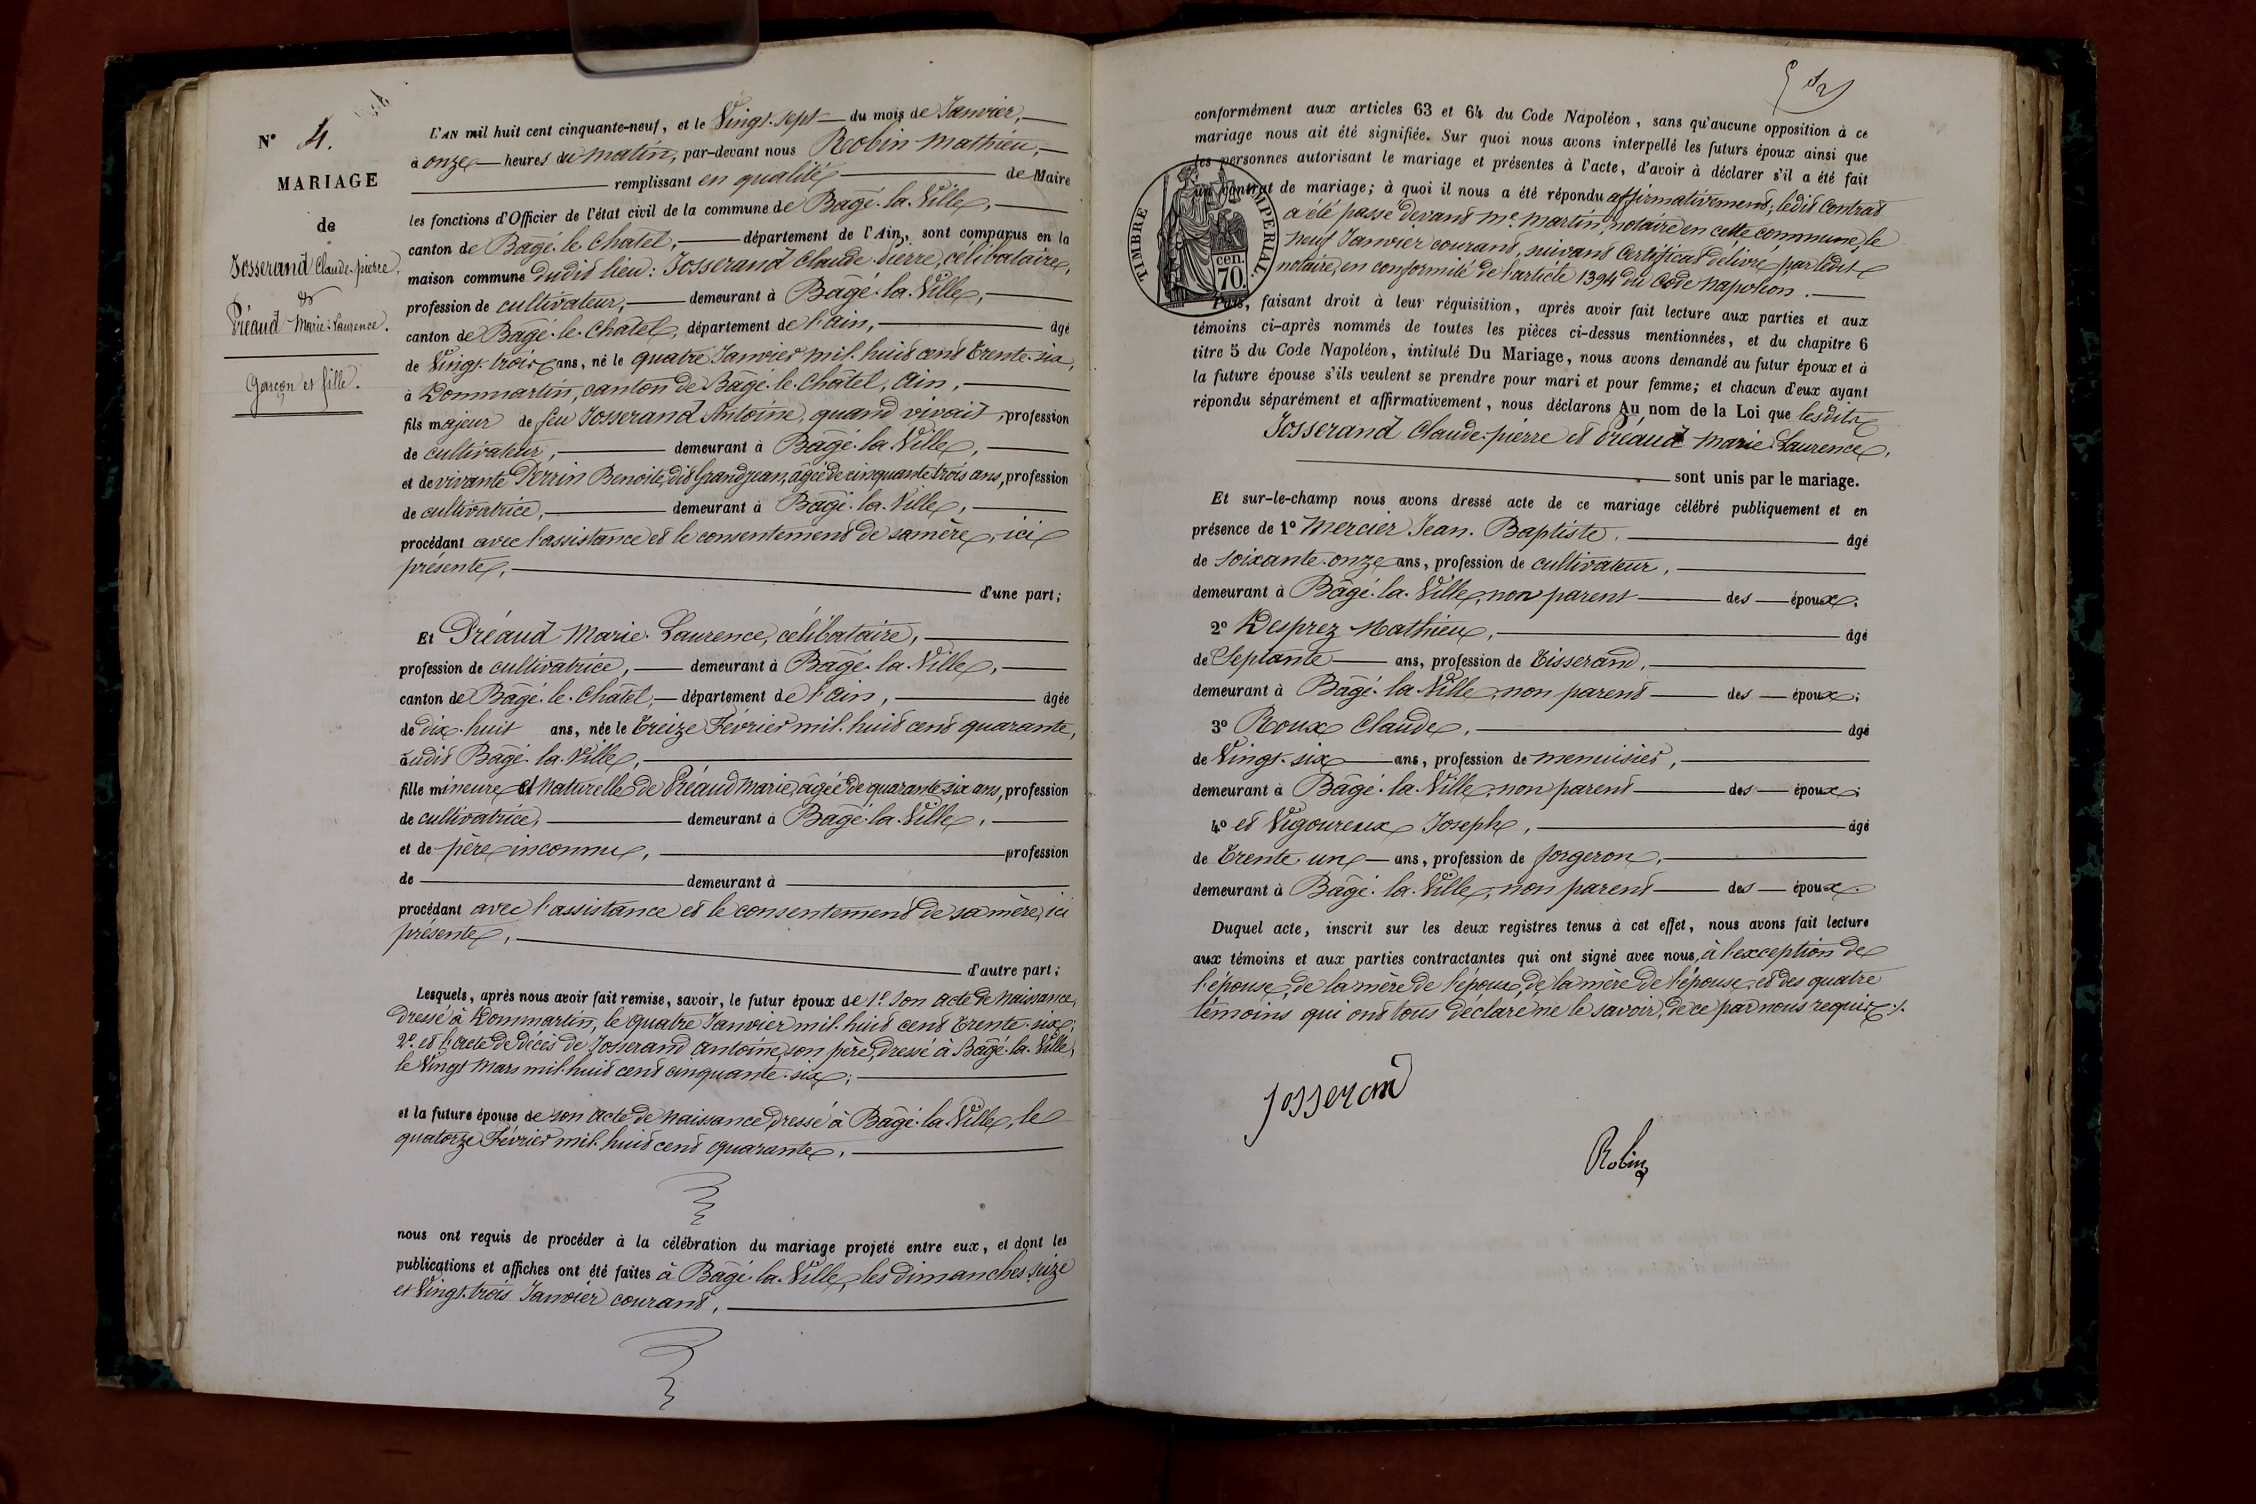 N° 4.
MARIAGE
de
Josserand Claude-pierre,
&
Préaud Marie-Laurence.
Garçon et fille.
L'AN mil huit cent cinquante-neuf, et le Vingt-Sept du mois de Janvier,
à onze heures du matin, par-devant nous Robin Mathieu,
remplissant en qualité de Maire
les fonctions d'Officier de l'état civil de la commune de Bâgé-la-Ville,
canton de Bâgé-le-Châtel, département de l'Ain, sont comparus en la
maison commune dudit lieu: Josserand Claude-Pierre, célibataire,
profession de cultivateur, demeurant à Bâgé-la-Ville,
canton de Bâgé-le-Châtel, département de l'ain, âgé
de Vingt-trois ans, né le quatre Janvier mil-huit cent trente-six,
à Dommartin, canton de Bâgé-le-Châtel, Ain,
fils majeur de feu Josserand Antoine, quand vivait, profession
de cultivateur, demeurant à Bâgé-la-Ville,
et de vivante Perrin Benoite, dit Grandjean, âgée de cinquante trois ans, profession
de cultivatrice, demeurant à Bâgé-la-Ville,
procédant avec l'assistance et le consentement de sa mère, ici
présente,
d'une part;
Et Préaud Marie-Laurence, célibataire,
profession de cultivatrice, demeurant à Bâgé-la-Ville,
canton de Bâgé-le-Châtel, département de l'ain, âgée
de dix-huit ans, née le treize Février mil-huit cent quarante,
audit Bâgé-la-Ville,
fille mineure et Naturelle de Préaud Marie, âgée de quarante-six ans, profession
de cultivatrice, demeurant à Bâgé-la-Ville,
et de père inconnu, profession
de demeurant à
procédant avec l'assistance et le consentement de sa mère, ici
présente,
d'autre part;
Lesquels, après nous avoir fait remise, savoir, le futur époux de 1° son acte de Naissance,
dressé à Dommartin, le quatre Janvier mil-huit cent trente-six;
2° et l'acte de décès de Josserand Antoine, son père, dressé à Bâgé-la-Ville,
le Vingt Mars mil-huit cent cinquante-six;
et la future épouse de son acte de Naissance dressé à Bâgé-la-Ville, le
quatorze Février mil-huit cent quarante,
nous ont requis de procéder à la célébration du mariage projeté entre eux, et dont les
publications et affiches ont été faites à Bâgé-la-Ville, les dimanches seize
et Vingt-trois Janvier courant,
conformément aux articles 63 et 64 du Code Napoléon, sans qu'aucune opposition à ce
mariage nous ait été signifiée. Sur quoi nous avons interpellé les futurs époux ainsi que
les personnes autorisant le mariage et présentes à l'acte, d'avoir à déclarer s'il a été fait
un contrat de mariage; à quoi il nous a été répondu affirmativement; ledit Contrat
a été passé devant Me Martin, notaire en cette commune, le
neuf Janvier courant, suivant Certificat délivré par ledit
notaire, en conformité de l'article 1394 du Code Napoléon.
TIMBRE IMPERIAL.
70. cen.
Puis, faisant droit à leur réquisition, après avoir fait lecture aux parties et aux
témoins ci-après nommés de toutes les pièces ci-dessus mentionnées, et du chapitre 6
titre 5 du Code Napoléon, intitulé Du Mariage, nous avons demandé au futur époux et à
la future épouse s'ils veulent se prendre pour mari et pour femme; et chacun d'eux ayant
répondu séparément et affirmativement, nous déclarons Au nom de la Loi que lesdits
Josserand Claude-pierre et Préaud Marie-Laurence,
sont unis par le mariage.
Et sur-le-champ nous avons dressé acte de ce mariage célébré publiquement et en
présence de 1° Mercier Jean-Baptiste, âgé
de soixante-onze ans, profession de cultivateur,
demeurant à Bâgé-la-Ville, non parent des époux.
2° Desprez Mathieu, âgé
de Septante ans, profession de Tisserand,
demeurant à Bâgé-la-Ville, non parent des époux;
3° Roux Claude, âgé
de Vingt-six ans, profession de menuisier,
demeurant à Bâgé-la-Ville, non parent des époux;
4° et Vigoureux Joseph, âgé
de Trente-un ans, profession de forgeron,
demeurant à Bâgé-la-Ville, non parent des époux.
Duquel acte, inscrit sur les deux registres tenus à cet effet, nous avons fait lecture
aux témoins et aux parties contractantes qui ont signé avec nous, à l'exception de
l'épouse, de la mère de l'époux, de la mère de l'épouse, et des quatre
témoins qui ont tous déclaré ne le savoir, de ce par nous requis./.
Josserand
Robin